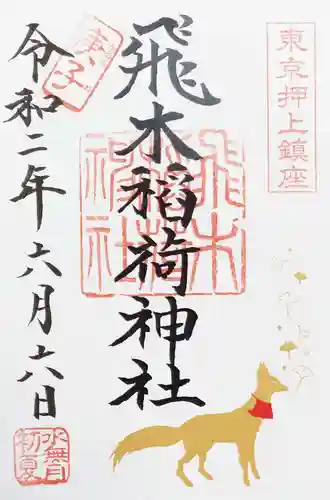 東京押上鎮座
飛木稲荷神社
飛木稲荷神社
令和二年六月六日
水無月
初夏